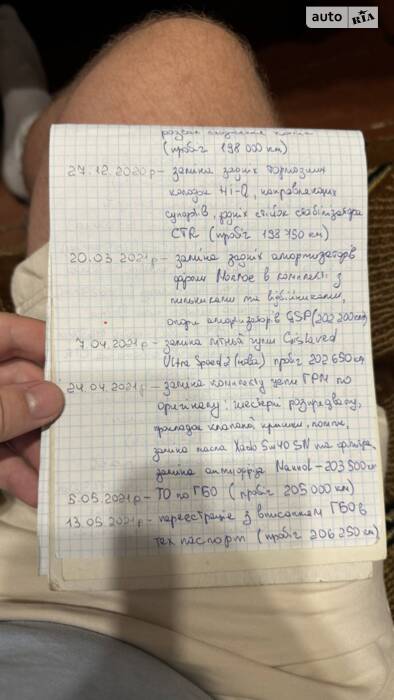 auto RIA
розвал сходження коліс
(пробіг 198 000 км)
27.12.2020р - заміна задніх тормозних
колодок Hi-Q, направляючих
супортів, задніх стійок стабілізатора
CTR (пробіг 198 750 км)
20.03.2021р - заміна задніх амортизаторів
фірми Monroe в комплекті з
пильниками та відбійниками,
опори амортизаторів GSP (202 200 км)
7.04.2021р - заміна літньої гуми Gislaved
Ultra Speed 2 (нова) пробіг 202 650 км
24.04.2021р - заміна комплекту цепи ГРМ по
оригіналу: шестерні розпредвалу,
прокладок клапанної кришки, помпи,
заміна масла Xado 5w40 SN та фільтра,
заміна антифриза Nannol - 203 500 км
5.05.2021р - ТО по ГБО (пробіг 205 000 км)
13.05.2021р - переєстрація з вписанням ГБО в
тех паспорт (пробіг 206 250 км)